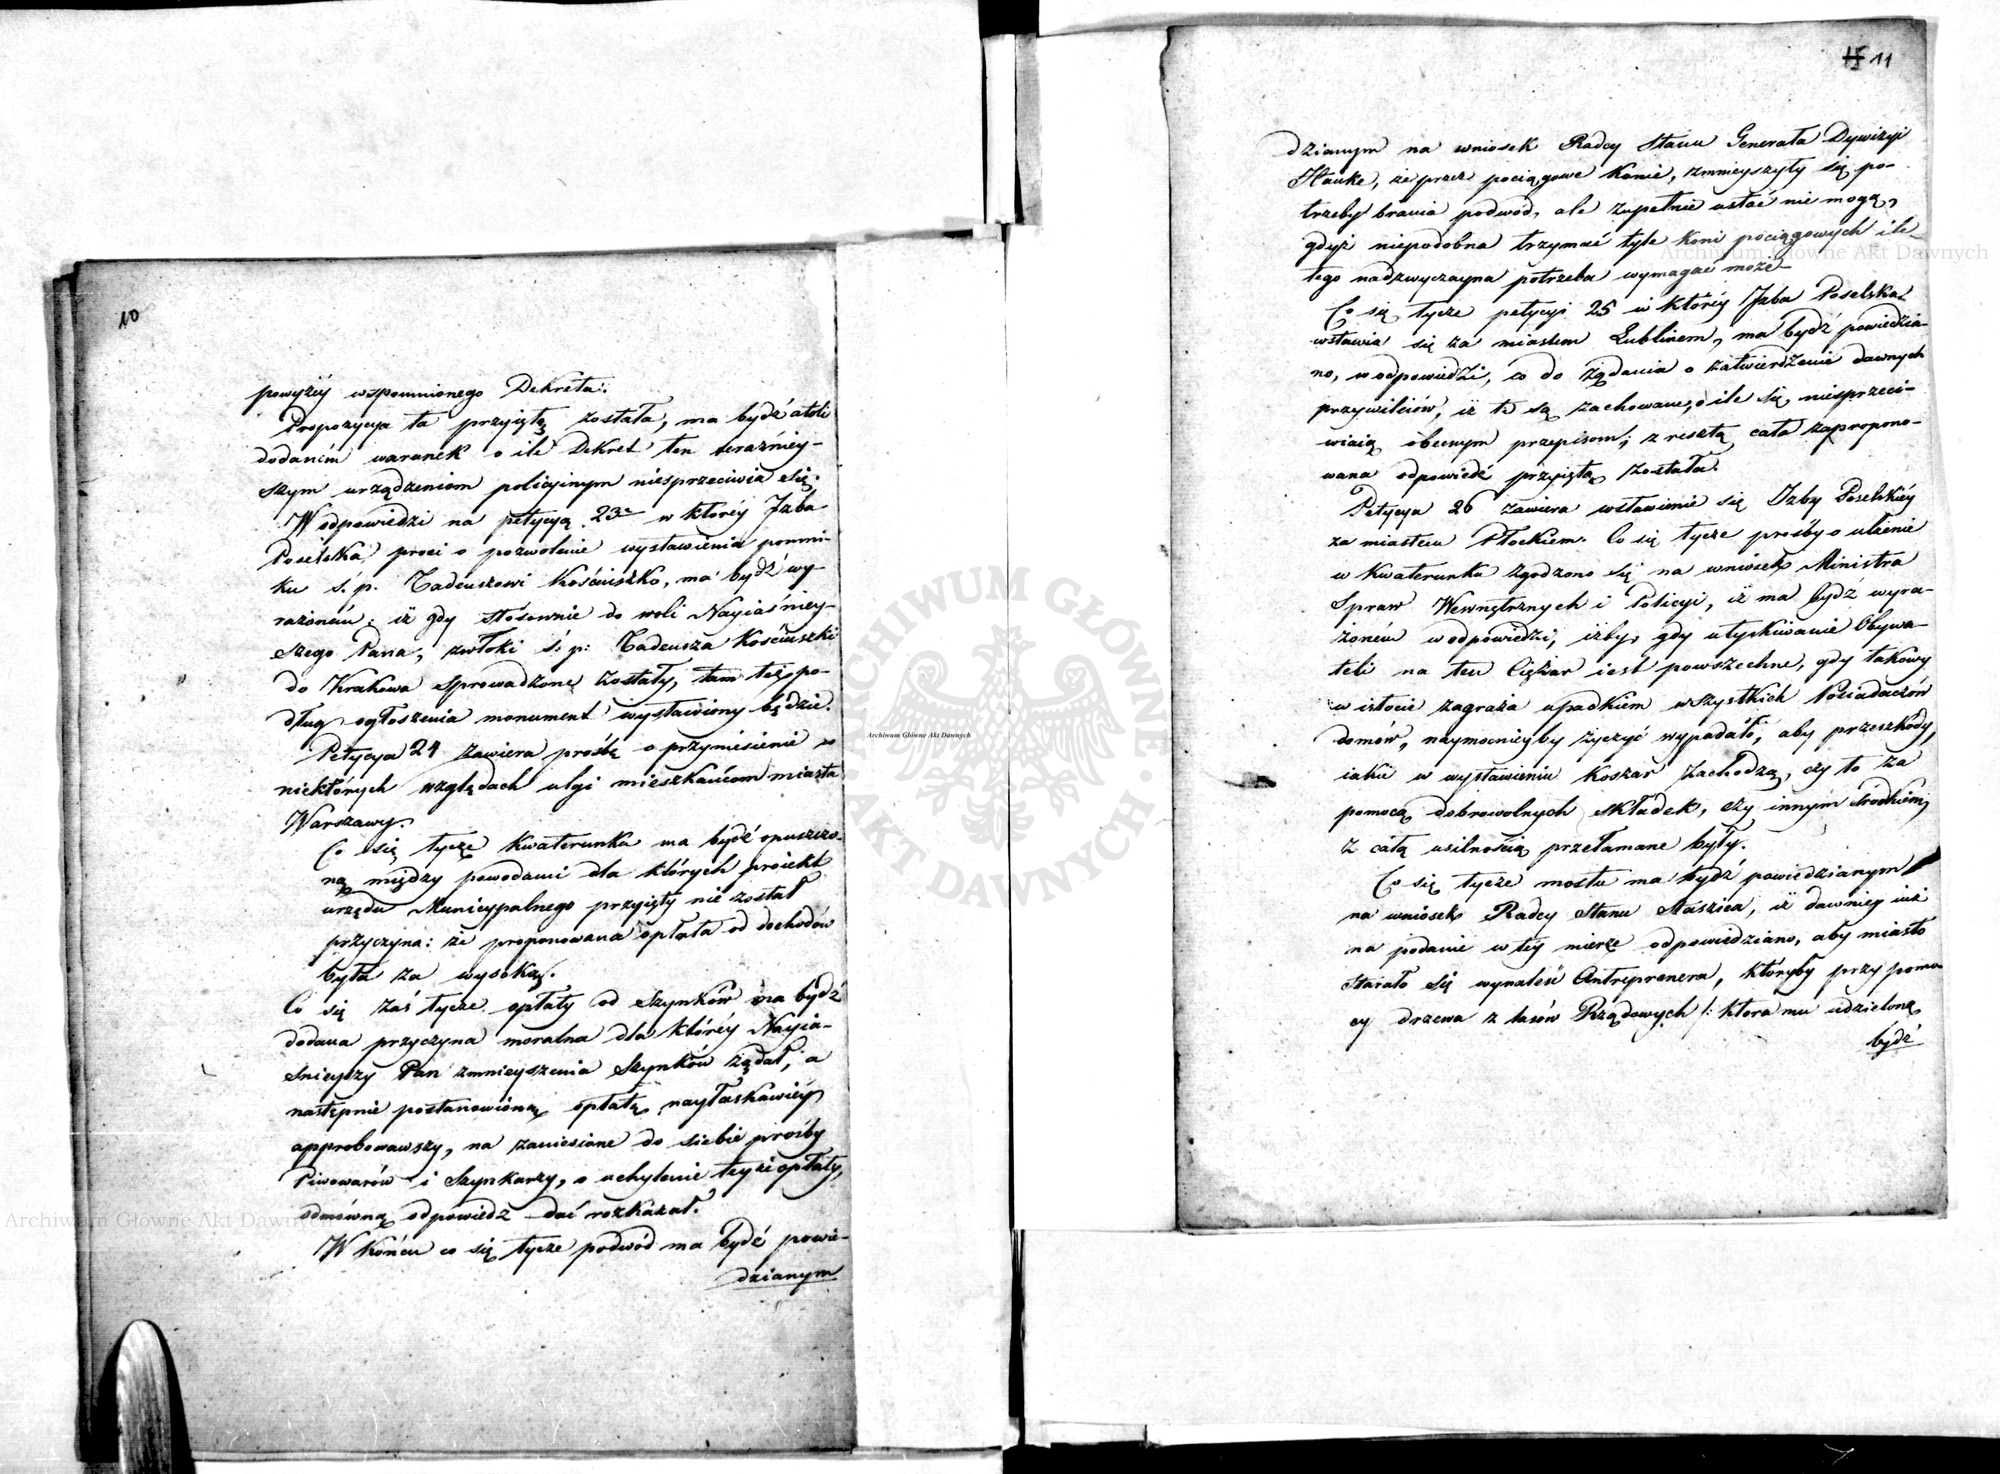 10
powyżéy wspomnionego Dekretu.
Propozycya ta przyiętą została, ma bydź atoli
dodaném warunek o ile Dekret ten teraźniey-
szym urządzeniom policyinym niesprzeciwia się.
W odpowiedzi na petycyą 23 w któréy Izba
Poselska prosi o pozwolenie wystawienia pomni-
ku ś. p. Tadeuszowi Kościuszko, ma bydź wy-
rażoném: iż gdy stósownie do woli Nayiaśniey-
szego Pana, zwłoki ś: p: Tadeusza Kościuszki
do Krakowa sprowadzone zostały, tam też po-
dług ogłoszenia monument wystawiony będzie.
Petycya 24 zawiera prośbę o przyniesienie w
niektórych względach ulgi mieszkańcom miasta
Warszawy.
Co się tycze kwaterunku ma bydź opuszczo-
ną między powodami dla których proiekt
urzędu Municypalnego przyięty nie został
przyczyna: że proponowana opłata od dochodów
była za wysoką.
Co się zaś tycze opłaty od szynków ma bydź
dodana przyczyna moralna dla któréy Nayia-
śnieyszy Pan zmnieyszenia szynków żądał, a
następnie postanowioną opłatę nayłaskawiéy
approbowawszy, na zaniesione do siebie prośby
Piwowarów i Szynkarzy, o uchylenie teyże opłaty,
odmówną odpowiedz dać rozkazał.
W końcu co się tycze podwód ma bydź powie-
dzianym
11
dzianym na wniosek Radcy Stanu Generała Dywizyi
Hauke, że przez pociągowe konie, zmnieyszyły się po-
trzeby brania podwód, ale zupełnie ustać nie mogą,
gdyż niepodobna trzymać tyle koni pociągowych ile
tego nadzwyczayna potrzeba wymagać może
Co się tycze petycyi 25 w któréy Izba Poselska
wstawia się za miastem Lublinem, ma bydź powiedzia-
no, w odpowiedzi, co do żądania o zatwierdzenie dawnych
przywileiów, iż te są zachowane, o ile się niesprzeci-
wiaią obecnym przepisom; z resztą cała zapropono-
wana odpowiedź przyiętą została.
Petycya 26 zawiera wstawienie się Izby Poselskiéy
za miastem Płockiem. Co się tycze prośby o ulżenie
w kwaterunku zgodzono się na wniosek Ministra
Spraw Wewnętrznych i Policyi, iż ma bydź wyra-
żoném w odpowiedzi, iżby, gdy utyskiwanie Obywa-
teli na ten Ciężar iest powszechne, gdy takowy
w istocie zagraża upadkiem wszystkich Posiadaczów
domów, naymocnieyby życzyć wypadało, aby przeszkody,
iakie w wystawieniu koszar zachodzą, czy to za
pomocą dobrowolnych składek, czy innym środkiem,
z całą usilnością przełamane były.
Co się tycze mostu ma bydź powiedzianym
na wniosek Radcy Stanu Staszica, iż dawniey iuż
na podanie w tey mierze odpowiedziano, aby miasto
starało się wynaleść Antreprenera, któryby przy pomo-
cy drzewa z lasów Rządowych /: która mu udzieloną
bydź
Archiwum Główne Akt Dawnych
Archiwum Główne Akt Dawnych
Archiwum Główne Akt Dawnych
ARCHIWUM GŁÓWNE AKT DAWNYCH